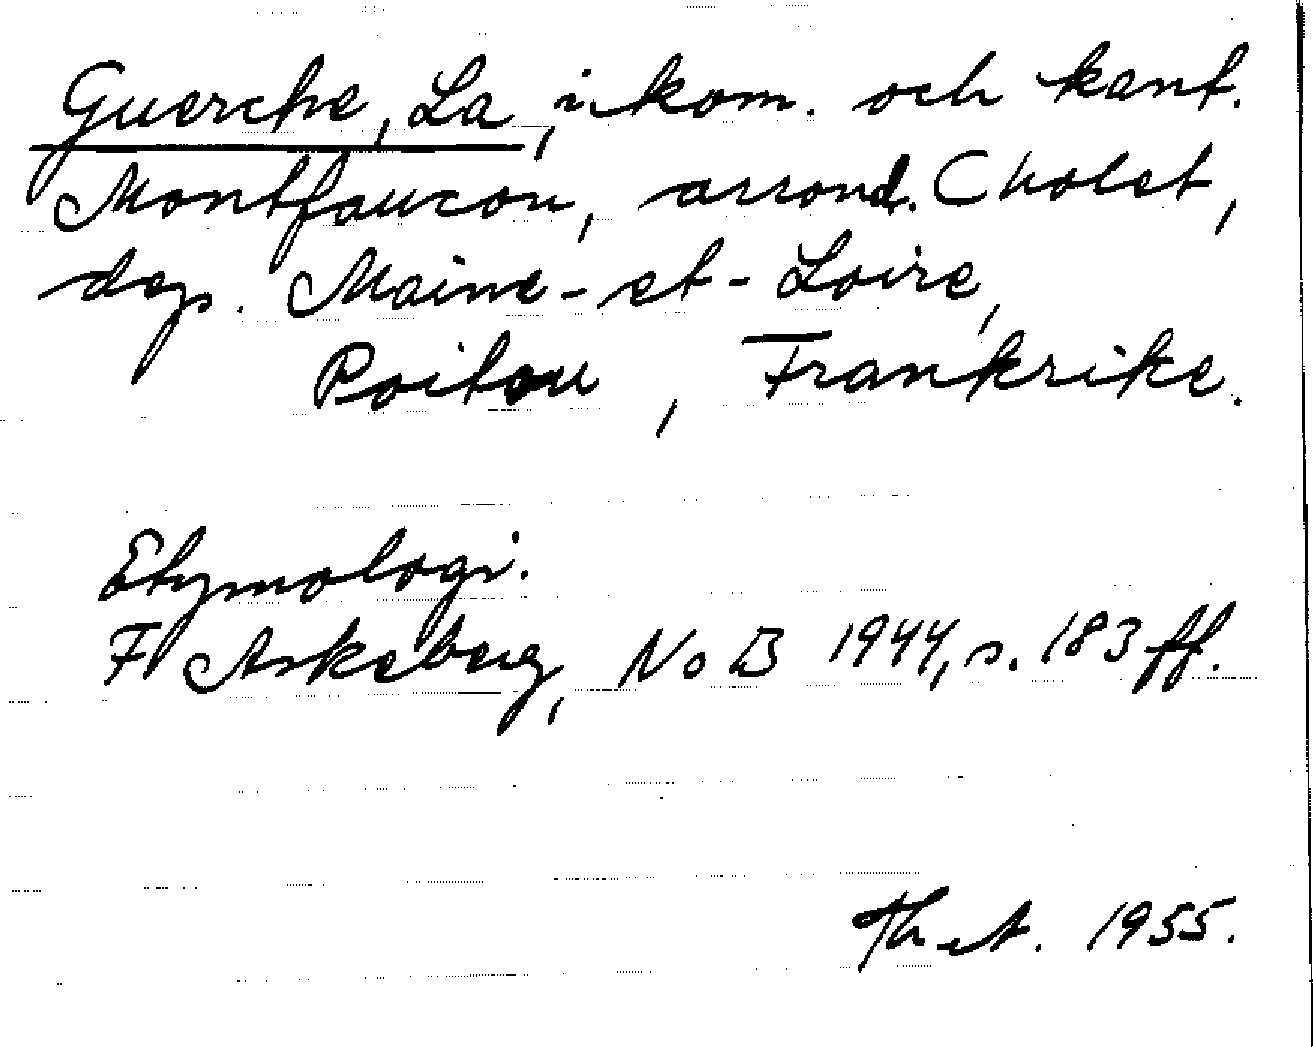 Guerche, La, i kom. och kant.
Montfaucon, arrond. Cholet,
dep. Maine-et-Loire,
Poitou, Frankrike.
Etymologi.
F Askeberg, NoB 1944, s. 183 ff.
1955.